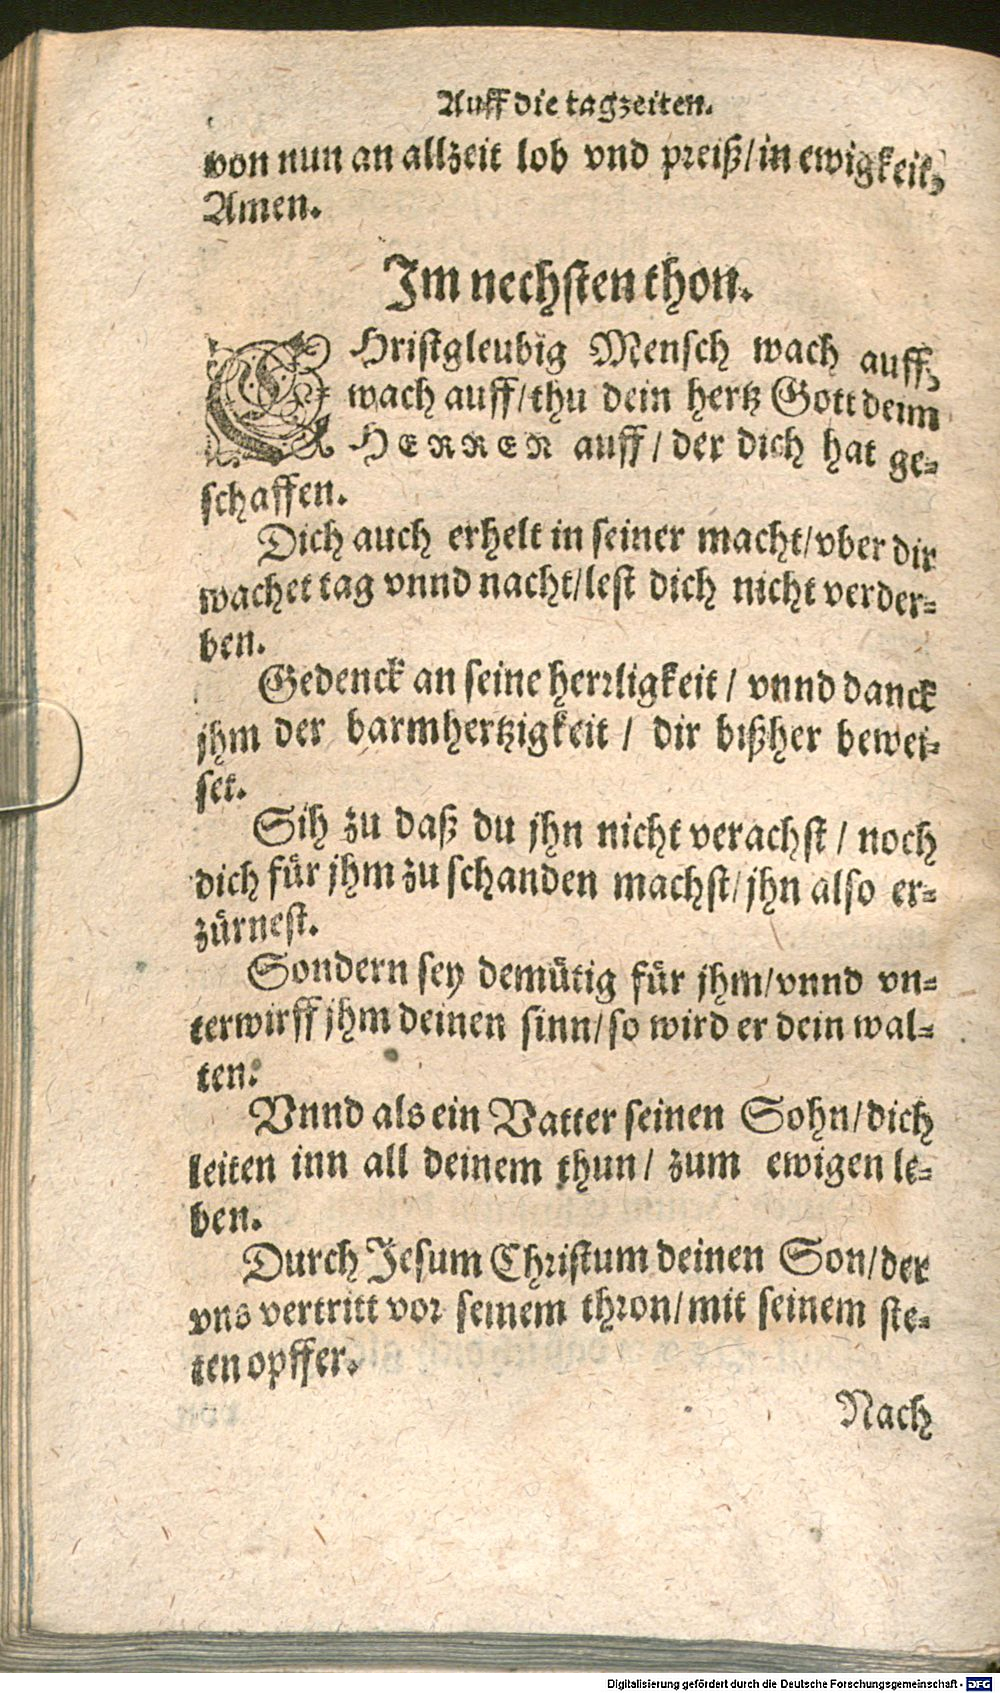 Auff die tagzeiten.
von nun an allzeit lob vnd preiß/in ewigkeit,
Amen.
Im nechsten thon.
CHristgleubig Mensch wach auff,
wach auff/thu dein hertz Gott deim
HERREN auff/ der dich hat ge-
schaffen.
Dich auch erhelt in seiner macht/vber dir
wachet tag vnnd nacht/lest dich nicht verder-
ben.
Gedenck an seine herrligkeit/ vnnd danck
jhm der barmhertzigkeit/ dir bißher bewei-
set.
Sih zu daß du jhn nicht verachst/ noch
dich für jhm zu schanden machst/jhn also er-
zürnest.
Sondern sey demütig für jhm/vnnd vn-
terwirff jhm deinen sinn/so wird er dein wal-
ten.
Vnnd als ein Vatter seinen Sohn/dich
leiten inn all deinem thun/ zum ewigen le-
ben.
Durch Jesum Christum deinen Son/der
vns vertritt vor seinem thron/mit seinem ste-
ten opffer.
Nach
Digitalisierung gefördert durch die Deutsche Forschungsgemeinschaft - DFG